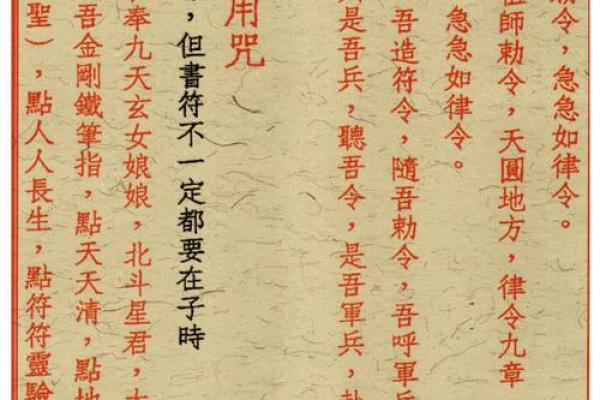 勅令，急急如律令。
師勅令，天圓地方，律令九章
急急如律令。
吾造符令，隨吾勅令，吾呼軍兵
是吾兵，聽吾令，是吾軍兵，
用咒
，但書符不一定都要在子時
奉九天玄女娘娘，北斗星君，
吾金剛鐵筆指，點天天清，點地
聖），點人人長生，點符符靈驗